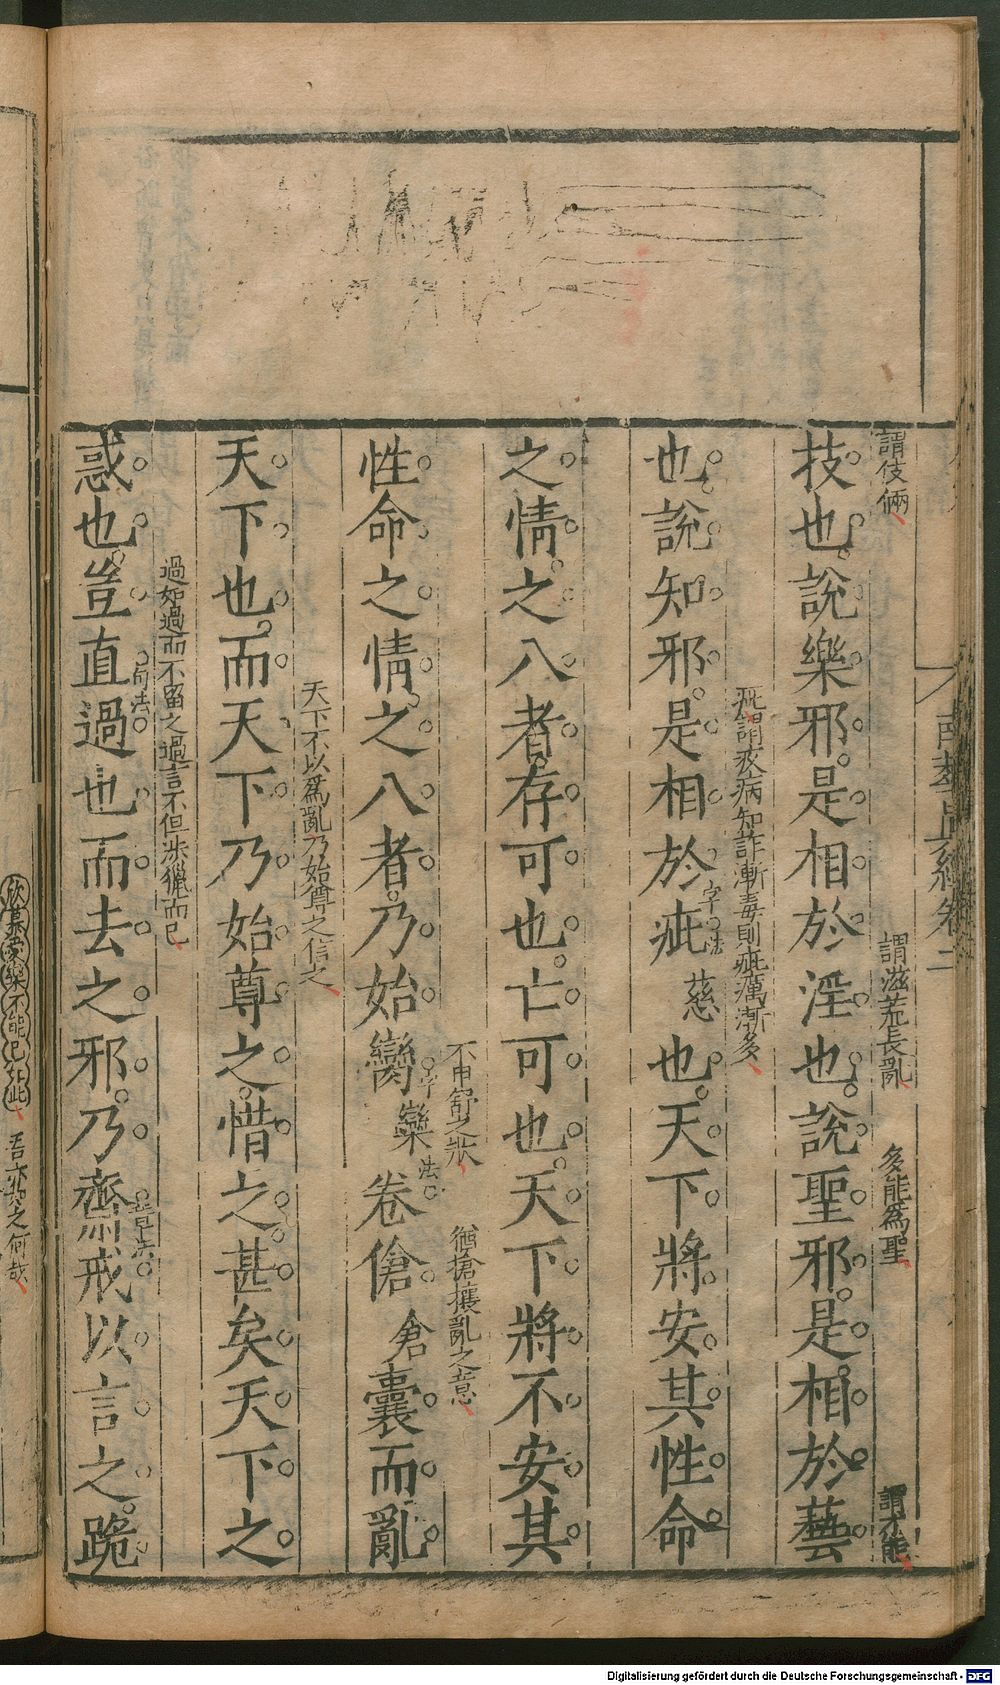 謂伎倆
謂滋荒長亂
多能為聖
謂才能
技也說樂邪是相於淫也說聖邪是相於藝
疵謂疾病知詐漸毒則疵癘漸多
也說知邪是相於疵慈也天下將安其性命
字法
之情之八者存可也亡可也天下將不安其
不申舒之狀
猶搶攘亂之意
性命之情之八者乃始臠欒卷傖倉囊而亂
字法
天下不以為亂乃始尊之信之
天下也而天下乃始尊之惜之甚矣天下之
過如過而不留之過言不但涉獵而已
惑也豈直過也而去之邪乃齋戒以言之跪
句法
章法
南華真經卷二
欣慕愛樂不能已如此
吾亦如之何哉
Digitalisierung gefördert durch die Deutsche Forschungsgemeinschaft - DFG